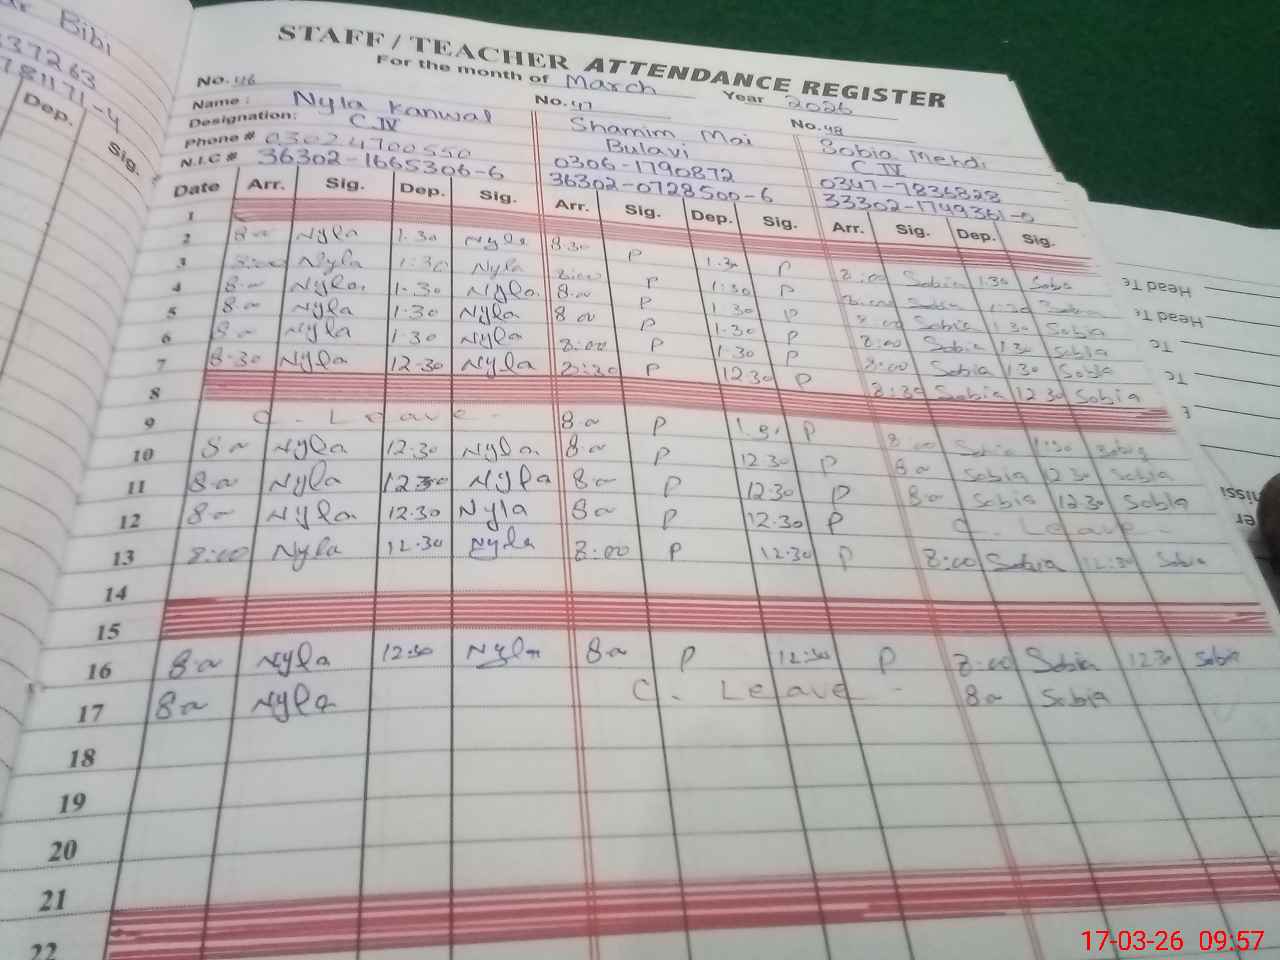 Bibi
37263
Dep.
Sig.
STAFF / TEACHER ATTENDANCE REGISTER
For the month of March Year 2026
No. 46 No. 47 No. 48
Name: Nyla Kanwal Shamim Mai Sobia Mehdi
Designation: C IV Bulavi C IV
Phone # 03024700550 0306-1790872 0347-7836828
N.I.C # 36302-1665306-6 36302-0728500-6 33302-1749361-0
Date Arr. Sig. Dep. Sig. Arr. Sig. Dep. Sig. Arr. Sig. Dep. Sig.
1
2 8:00 Nyla 1.30 Nyla 8:30 P 1.30 P 8:00 Sobia 1.30 Sobia
3 8:00 Nyla 1:30 Nyla 8:00 P 1:30 P 8:00 Sobia 1:30 Sobia
4 8:00 Nyla. 1.30 Nyla. 8:00 P 1.30 P 8:00 Sobia 1.30 Sobia
5 8:00 Nyla 1.30 Nyla 8:00 P 1.30 P 8:00 Sobia 1.30 Sobia
6 8:00 Nyla 1.30 Nyla 8:00 P 1.30 P 8:00 Sobia 1.30 Sobia
7 8:30 Nyla 12.30 Nyla 8:30 P 12.30 P 8:30 Sobia 12.30 Sobia
8
9 C. Leave - 8:00 P P 8:00 Sobia 1:30 Sobia
10 8:00 Nyla 12.30 Nyla. 8:00 P 12.30 P 8:00 Sobia 12.30 Sobia
11 8:00 Nyla 12.30 Nyla 8:00 P 12.30 P 8:00 Sobia 12.30 Sobia
12 8:00 Nyla. 12.30 Nyla 8:00 P 12.30 P C. Leave -
13 8:00 Nyla 12.30 Nyla 8:00 P 12.30 P 8:00 Sobia 12:30 Sobia
14
15
16 8:00 Nyla 12.30 Nyla 8:00 P 12:30 P 8:00 Sobia 12.30 Sobia
17 8:00 Nyla C. Leave - 8:00 Sobia
18
19
20
21
22
Head Te
Head Te
Te
Te
17-03-26 09:57